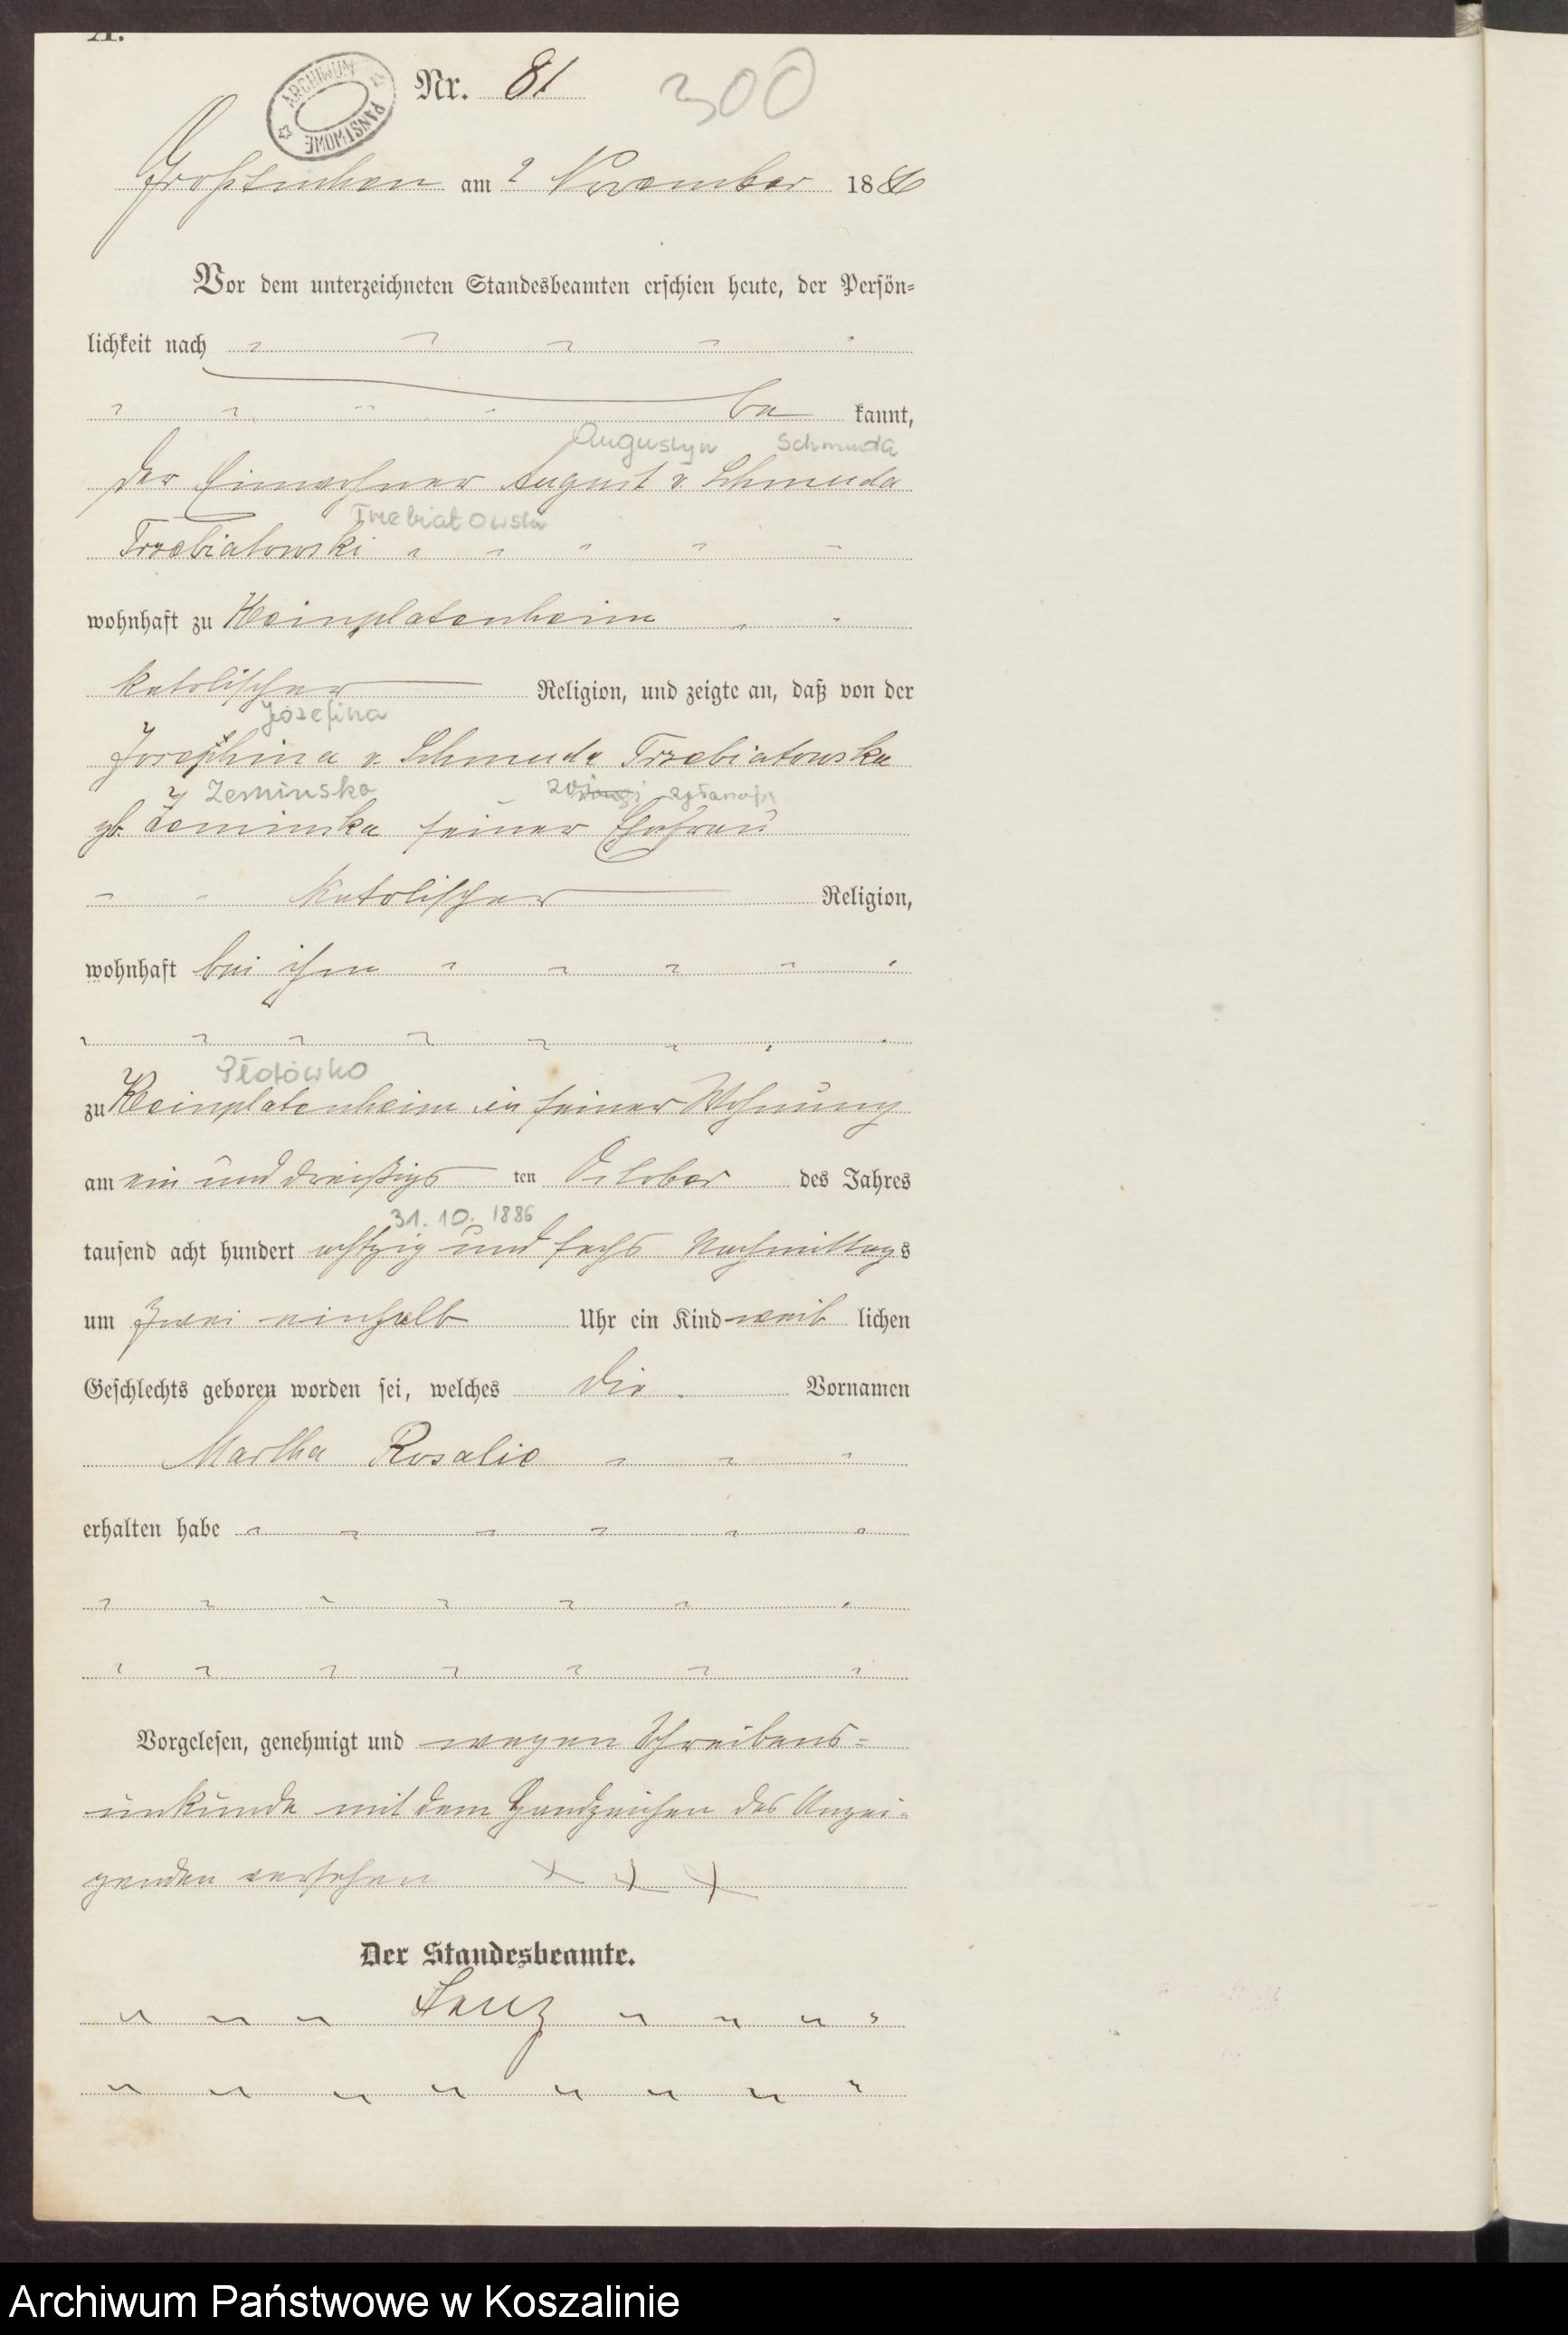 A.
ARCHIWUM PAŃSTWOWE
Nr. 81 300
Großtuchen am 2 November 1886
Vor dem unterzeichneten Standesbeamten erschien heute, der Persön-
lichkeit nach
be kannt,
Augustyn Schmuda
der Einwohner August v. Schmuda
Trzebiatowski
wohnhaft zu Kleinplatenheim
katolischer Religion, und zeigte an, daß von der
Józefina
Josephina v. Schmuda Trzebiatowska
Zeminska
gb. Zeminska seiner Ehefrau
katolischer Religion,
wohnhaft bei ihm
Płotówko
zu Kleinplatenheim in seiner Wohnung
am ein und dreißigs ten October des Jahres
31. 10. 1886
tausend acht hundert achtzig und sechs Nachmittags
um zwei einhalb Uhr ein Kind weib lichen
Geschlechts geboren worden sei, welches die Vornamen
Martha Rosalie
erhalten habe
Vorgelesen, genehmigt und wegen Schreibens-
unkunde mit dem Handzeichen des Anzei-
genden versehen + + +
Der Standesbeamte.
Archiwum Państwowe w Koszalinie